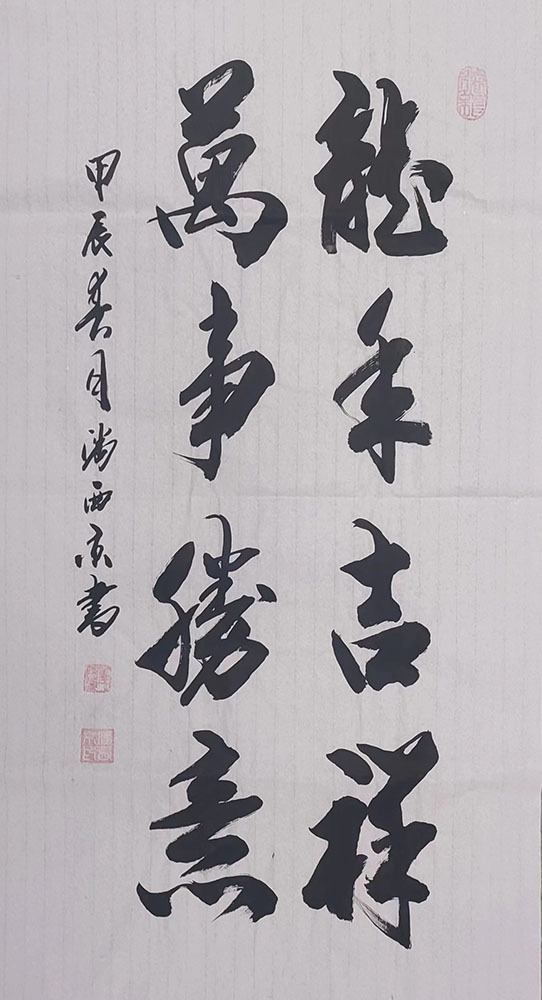 龍年吉祥
萬事勝意
甲辰春月潘西京書